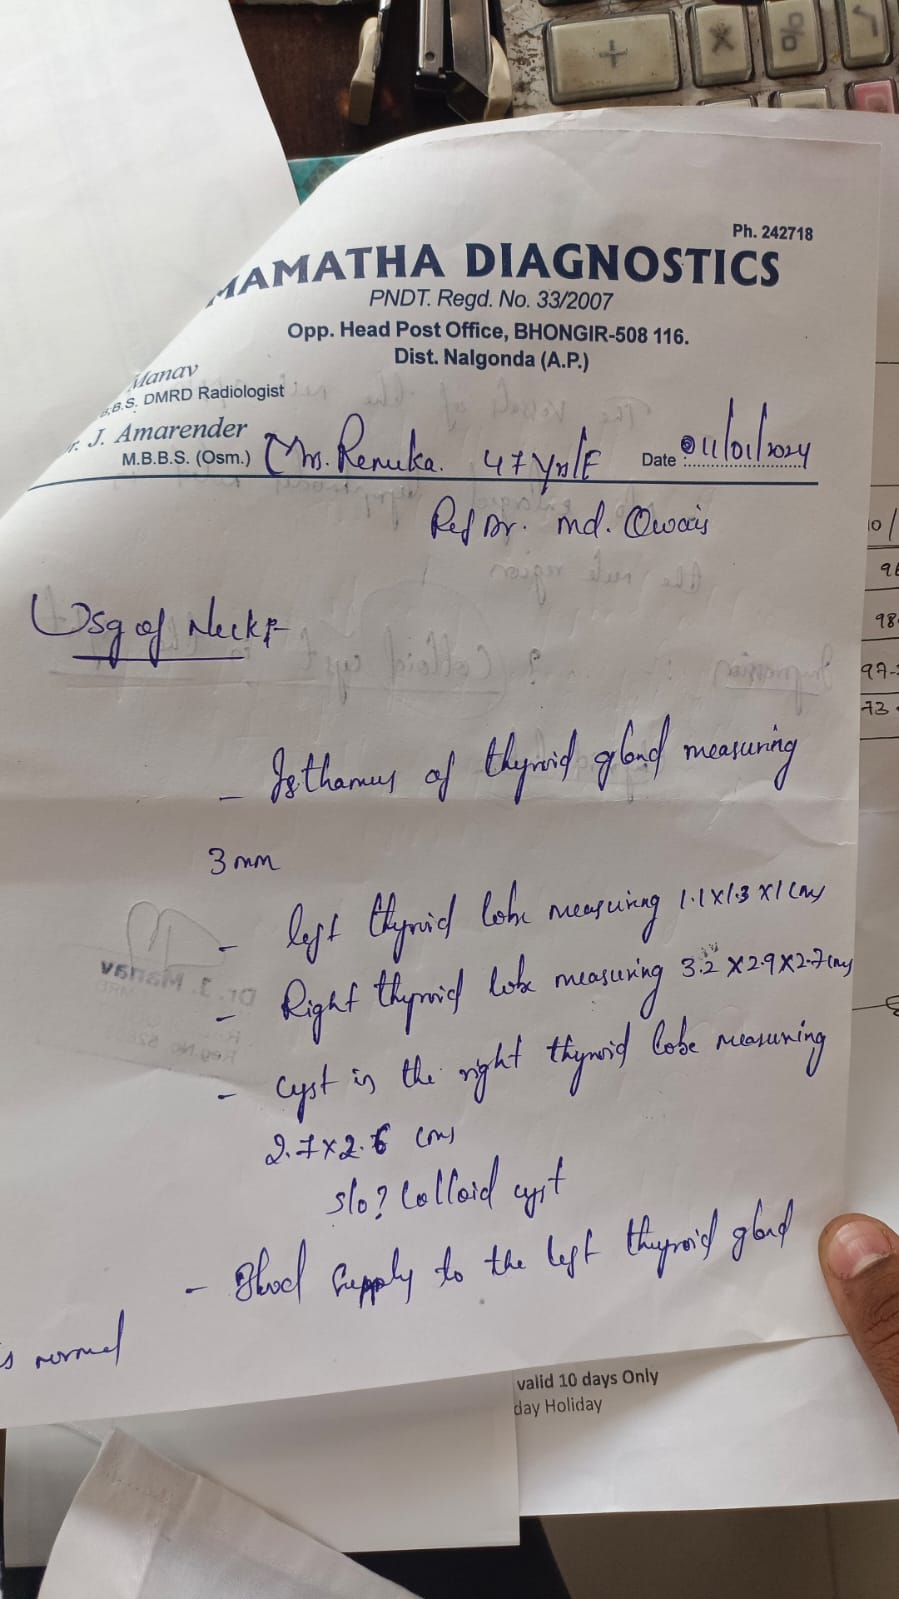 Ph. 242718
MAMATHA DIAGNOSTICS
PNDT. Regd. No. 33/2007
Opp. Head Post Office, BHONGIR-508 116.
Dist. Nalgonda (A.P.)
Manav
B.B.S. DMRD Radiologist
r. J. Amarender
M.B.B.S. (Osm.) Mrs. Renuka. 47 Yrs/F Date 011/01/2024
Ref Dr. Md. Owais
Usg of Neck :-
- Isthamus of thyroid gland measuring
3 mm
- left thyroid lobe measuring 1.1 x 1.3 x 1 cms
- Right thyroid lobe measuring 3.2 x 2.9 x 2.7 cms
- cyst in the right thyroid lobe measuring
2.7 x 2.6 cms
s/o ? Colloid cyst
- Blood supply to the left thyroid gland
is normal
valid 10 days Only
day Holiday
+ × %  √
10/
98
97-
73